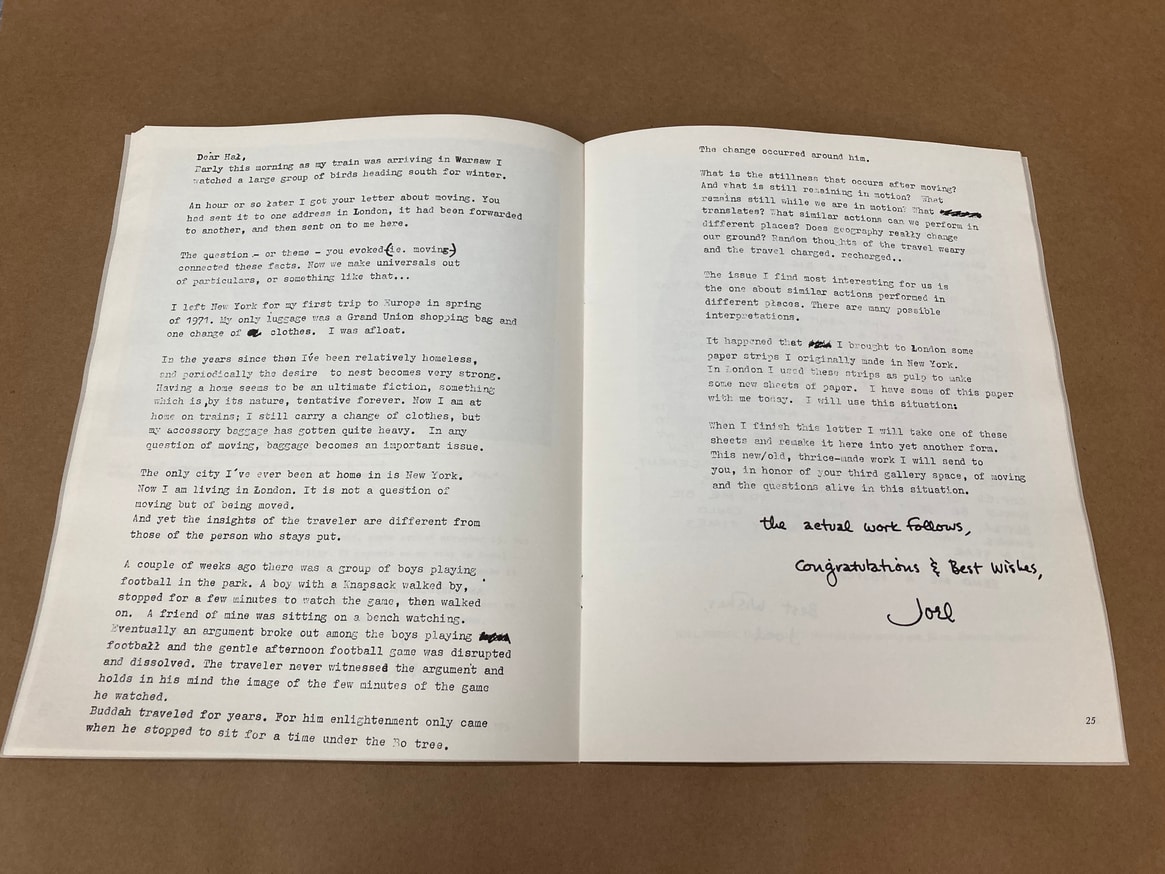 Dear Hal,
Early this morning as my train was arriving in Warsaw I
watched a large group of birds heading south for winter.
An hour or so later I got your letter about moving. You
had sent it to one address in London, it had been forwarded
to another, and then sent on to me here.
The question - or theme - you evoked (ie. moving)
connected these facts. Now we make universals out
of particulars, or something like that...
I left New York for my first trip to Europe in spring
of 1971. My only luggage was a Grand Union shopping bag and
one change of clothes. I was afloat.
In the years since then I've been relatively homeless,
and periodically the desire to nest becomes very strong.
Having a home seems to be an ultimate fiction, something
which is, by its nature, tentative forever. Now I am at
home on trains; I still carry a change of clothes, but
my accessory baggage has gotten quite heavy. In any
question of moving, baggage becomes an important issue.
The only city I've ever been at home in is New York.
Now I am living in London. It is not a question of
moving but of being moved.
And yet the insights of the traveler are different from
those of the person who stays put.
A couple of weeks ago there was a group of boys playing
football in the park. A boy with a Knapsack walked by,
stopped for a few minutes to watch the game, then walked
on. A friend of mine was sitting on a bench watching.
Eventually an argument broke out among the boys playing
football and the gentle afternoon football game was disrupted
and dissolved. The traveler never witnessed the argument and
holds in his mind the image of the few minutes of the game
he watched.
Buddah traveled for years. For him enlightenment only came
when he stopped to sit for a time under the Bo tree.
The change occurred around him.
What is the stillness that occurs after moving?
And what is still remaining in motion? What
remains still while we are in motion? What
translates? What similar actions can we perform in
different places? Does geography really change
our ground? Random thoughts of the travel weary
and the travel charged. recharged..
The issue I find most interesting for us is
the one about similar actions performed in
different places. There are many possible
interpretations.
It happened that I brought to London some
paper strips I originally made in New York.
In London I used these strips as pulp to make
some new sheets of paper. I have some of this paper
with me today. I will use this situation:
When I finish this letter I will take one of these
sheets and remake it here into yet another form.
This new/old, thrice-made work I will send to
you, in honor of your third gallery space, of moving
and the questions alive in this situation.
the actual work follows,
Congratulations & Best Wishes,
Joel
25